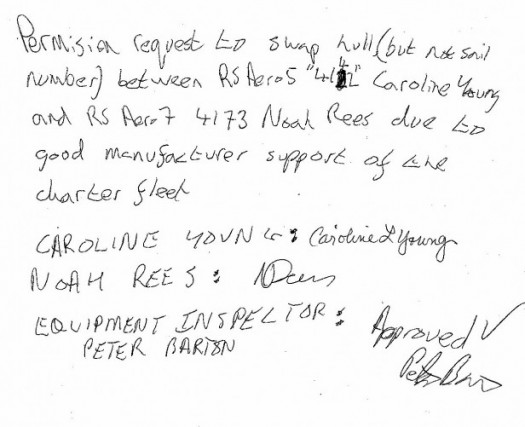 Permision request to swap hull (but not sail
number) between RS Aero5 "4142" Caroline Young
and RS Aero7 4173 Noah Rees due to
good manufacturer support of the
charter fleet
CAROLINE YOUNG: Caroline L Young
NOAH REES: NRees
EQUIPMENT INSPECTOR: Approved ✓
PETER BARTON